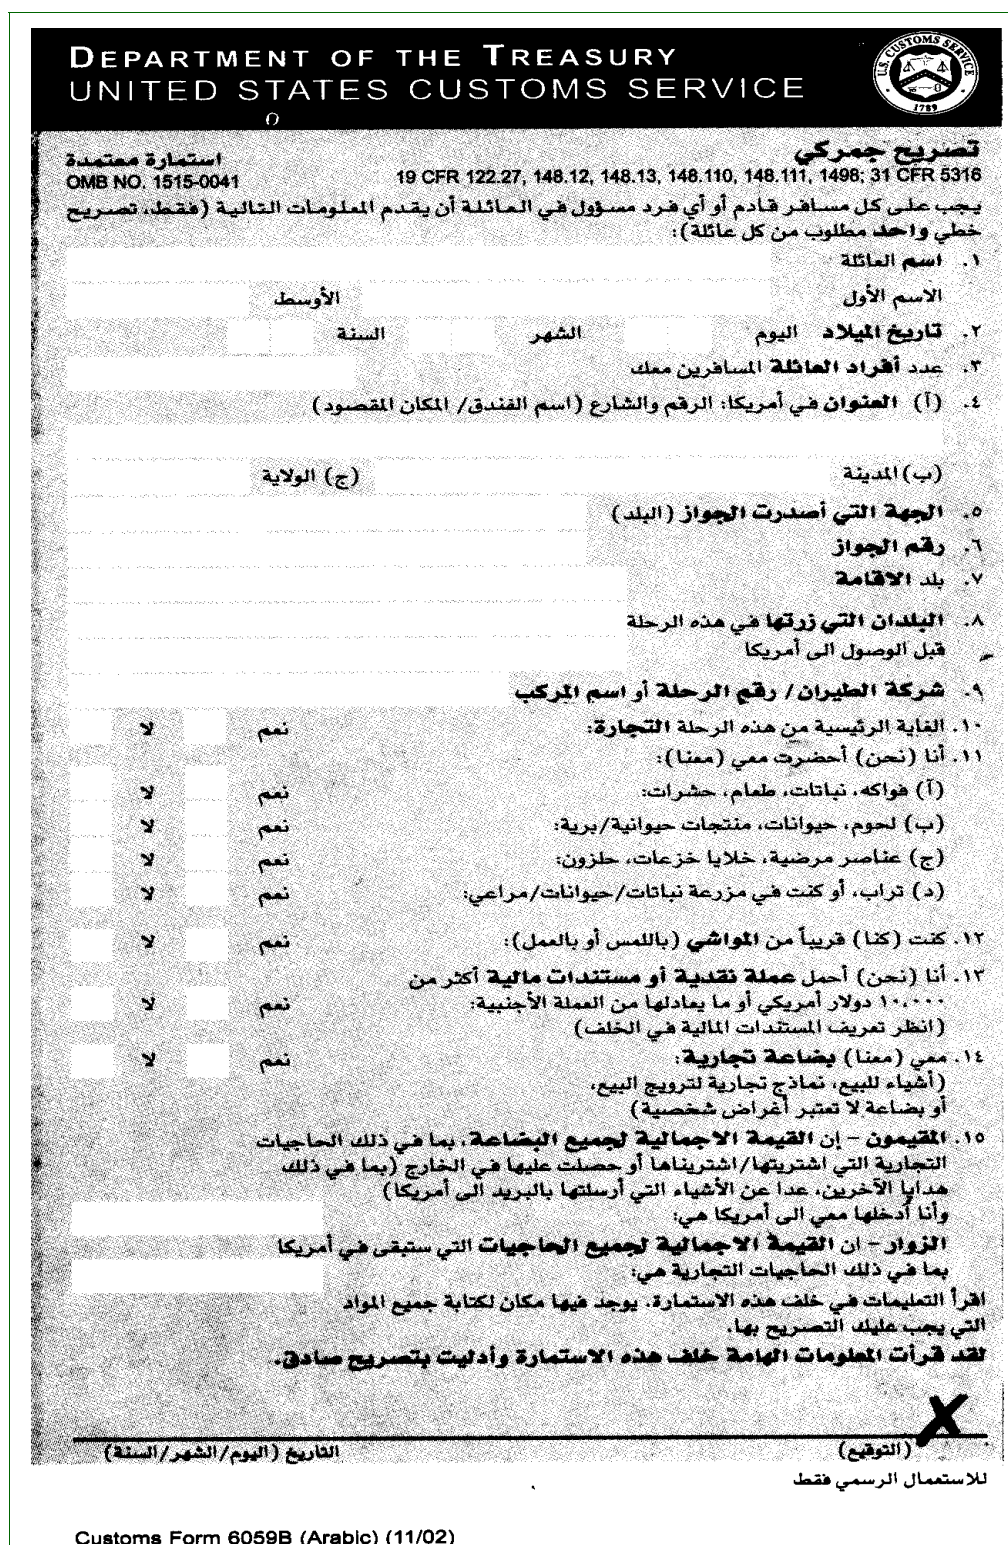 DEPARTMENT OF THE TREASURY
UNITED STATES CUSTOMS SERVICE
U.S. CUSTOMS SERVICE
1789
تصريح جمركي
استمارة معتمدة
19 CFR 122.27, 148.12, 148.13, 148.110, 148.111, 1498; 31 CFR 5316
OMB NO. 1515-0041
يجب على كل مسافر قادم أو أي فرد مسؤول في العائلة أن يقدم المعلومات التالية (فقط، تصريح
خطي واحد مطلوب من كل عائلة):
١. اسم العائلة
الاسم الأول الأوسط
٢. تاريخ الميلاد اليوم الشهر السنة
٣. عدد أفراد العائلة المسافرين معك
٤. (آ) العنوان في أمريكا: الرقم والشارع (اسم الفندق/ المكان المقصود)
(ب) المدينة (ج) الولاية
٥. الجهة التي أصدرت الجواز (البلد)
٦. رقم الجواز
٧. بلد الاقامة
٨. البلدان التي زرتها في هذه الرحلة
قبل الوصول الى أمريكا
٩. شركة الطيران/ رقم الرحلة أو اسم المركب
١٠. الغاية الرئيسية من هذه الرحلة التجارة: نعم لا
١١. أنا (نحن) أحضرت معي (معنا):
(آ) فواكه، نباتات، طعام، حشرات: نعم لا
(ب) لحوم، حيوانات، منتجات حيوانية/برية: نعم لا
(ج) عناصر مرضية، خلايا خزعات، حلزون: نعم لا
(د) تراب، أو كنت في مزرعة نباتات/حيوانات/مراعي: نعم لا
١٢. كنت (كنا) قريباً من المواشي (باللمس أو بالعمل): نعم لا
١٣. أنا (نحن) أحمل عملة نقدية أو مستندات مالية أكثر من
١٠،٠٠٠ دولار أمريكي أو ما يعادلها من العملة الأجنبية: نعم لا
(انظر تعريف المستندات المالية في الخلف)
١٤. معي (معنا) بضاعة تجارية: نعم لا
(أشياء للبيع، نماذج تجارية لترويج البيع،
أو بضاعة لا تعتبر أغراض شخصية)
١٥. المقيمون – إن القيمة الاجمالية لجميع البضاعة، بما في ذلك الحاجيات
التجارية التي اشتريتها/اشتريناها أو حصلت عليها في الخارج (بما في ذلك
هدايا الآخرين، عدا عن الأشياء التي أرسلتها بالبريد الى أمريكا)
وأنا أُدخلها معي الى أمريكا هي:
الزوار – ان القيمة الاجمالية لجميع الحاجيات التي ستبقى في أمريكا
بما في ذلك الحاجيات التجارية هي:
اقرأ التعليمات في خلف هذه الاستمارة. يوجد فيها مكان لكتابة جميع المواد
التي يجب عليك التصريح بها.
لقد قرأت المعلومات الهامة خلف هذه الاستمارة وأدليت بتصريح صادق.
X
(التوقيع) التاريخ (اليوم/الشهر/السنة)
للاستعمال الرسمي فقط
Customs Form 6059B (Arabic) (11/02)